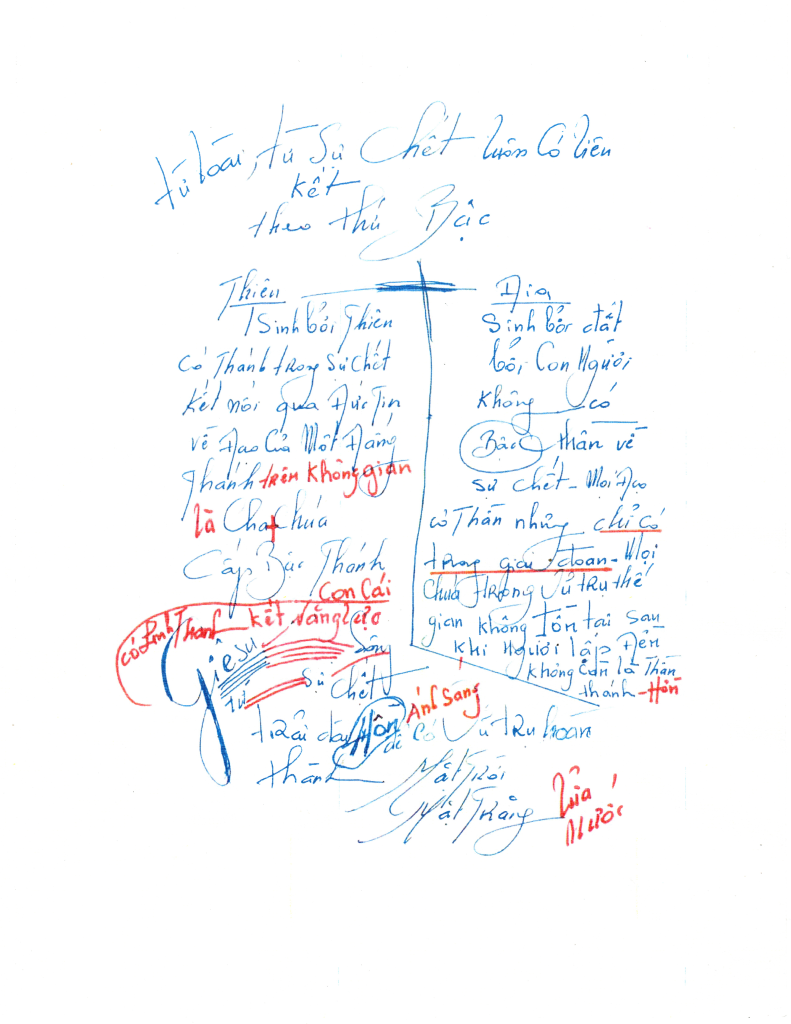 từ loài, từ Sự Chết luôn Có liên
kết
theo thứ Bậc
Thiên
Sinh bởi Thiên
Có Thánh trong Sự Chết
kết nối qua Đức Tin
về Đạo Của Một Đấng
Thánh trên không gian
là Cha Chúa
Cấp Bậc Thánh
Con Cái
có Linh Thánh kết bằng lực
Giêsu Sống
từ Sự Chết
Địa
Sinh bởi đất
bởi Con Người
không có
Bậc thần về
sự chết - Mọi Đạo
có Thần nhưng chỉ có
trong giai đoạn - Mọi
Chúa trong Vũ trụ thế
gian không Tồn tại sau
khi Người lấp Đến
không Còn là Thần
thánh - Hồn
Ánh Sáng
trải Hồn để Có Vũ trụ hoàn
thành Mặt Trời
Mặt Trăng
Lửa
Nước